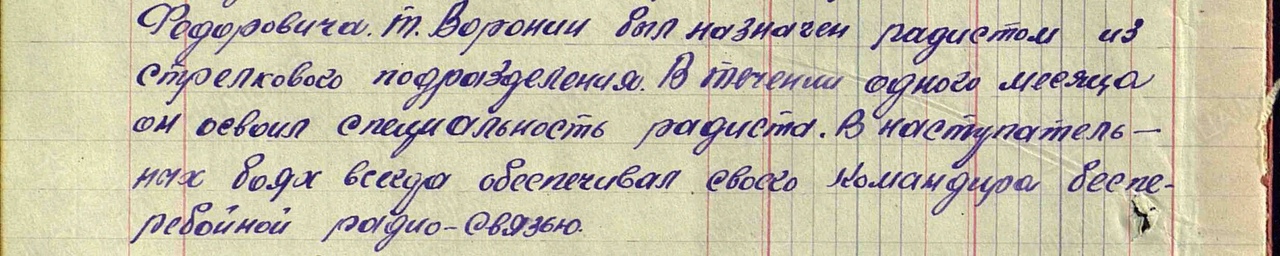 Федоровича. т. Воронин был назначен радистом из
стрелкового подразделения. В течении одного месяца
он освоил специальность радиста. В наступатель-
ных боях всегда обеспечивал своего командира беспе-
ребойной радио-связью.